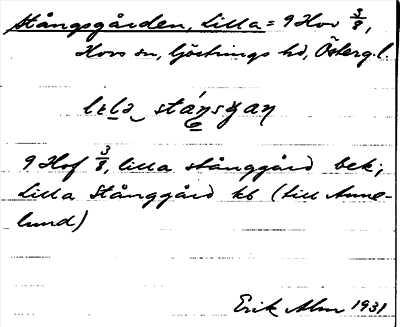 Stångsgården, Lilla = 9 Hov 3/8,
Hovs sn, Göstrings hd, Östergl.
9 Hof 3/8, lilla stånggård bek;
Lilla Stånggård kb (till Anne-
lund)
Erik Alm 1931